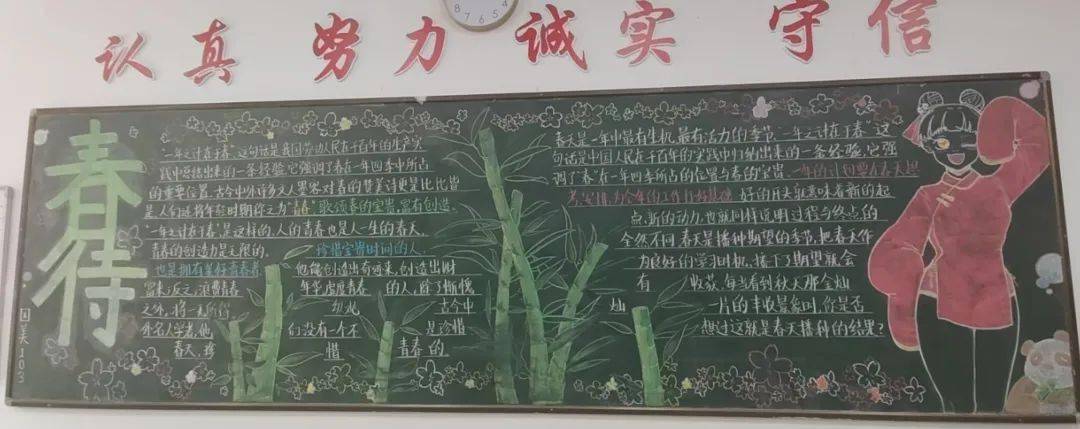 认真 努力 诚实 守信
8 7 6 5 4
春待
国美103
"一年之计在于春"，这句话是我国劳动人民在千百年的生产实
践中总结出来的一条经验，它强调了春在一年四季中所占
的重要位置。古今中外许多文人墨客对春的赞美诗更是比比皆
是，人们还将年轻时期称之为"青春"歌颂春的宝贵，富有创造。
"一年之计在于春"，是这样的，人的青春也是人一生的春天。
青春的创造力是无限的。 珍惜宝贵时间的人，
也是拥有美好青春者 他能创造出奇迹来，创造出财
富来，反之，浪费青春 年华，虚度青春 的人，除了惭愧
之外，将一无所得 古今中
外名人学者，他 们没有一个不 是珍惜
春天，珍 惜 青春的
春天是一年中最有生机，最有活力的季节，一年之计在于春"，这
句话是中国人民在千百年的实践中归纳出来的一条经验，它强
调了"春"在一年四季所占的位置与春的宝贵。一年的计划要在春天起
好的开头就意味着新的起
点，新的动力，也就同样说明过程与终点的
全然不同，春天是播种期望的季节，把春天作
为良好的学习时机，接下了期望就会
有 收获，每当看到秋天那金灿
灿 一片的丰收景象时，你是否
想过这就是春天播种的结果？